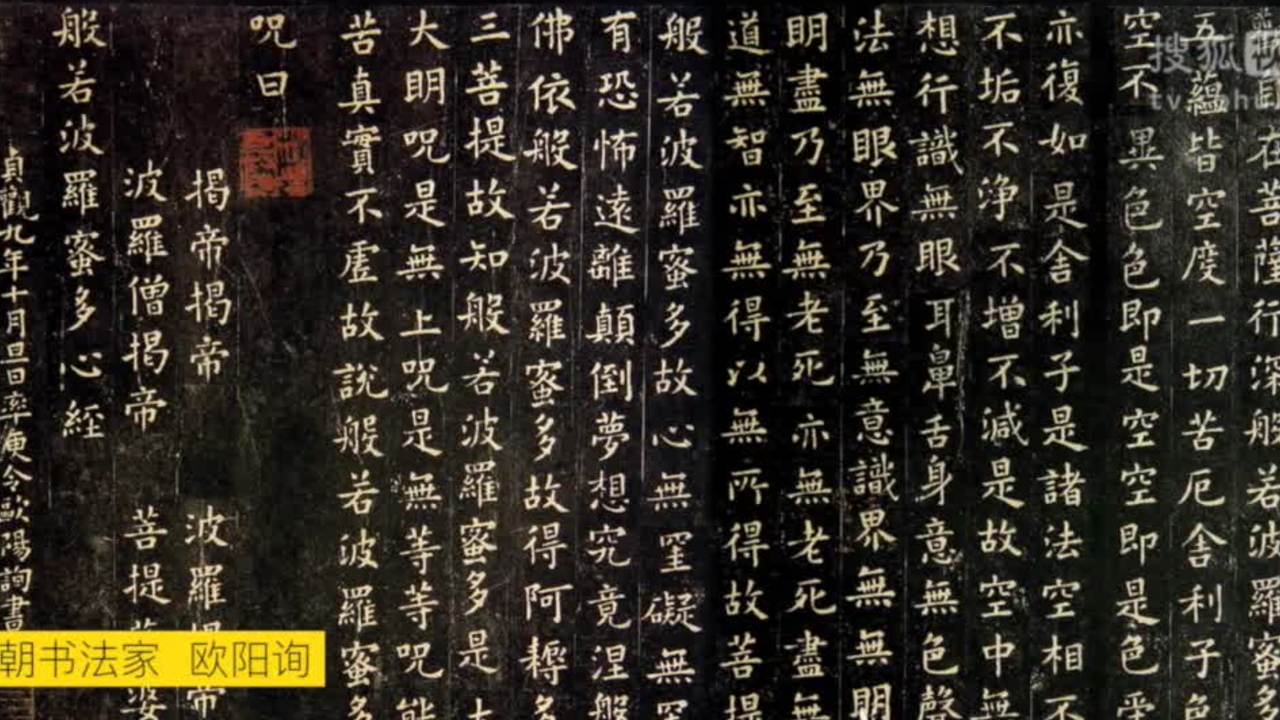 在菩薩行深般若波羅蜜多
五蘊皆空度一切苦厄舍利子色
空不異色色即是空空即是色受
亦復如是舍利子是諸法空相不
不垢不淨不增不減是故空中無
想行識無眼耳鼻舌身意無色聲
法無眼界乃至無意識界無無明
明盡乃至無老死亦無老死盡無
道無智亦無得以無所得故菩提
般若波羅蜜多故心無罣礙無罣
有恐怖遠離顛倒夢想究竟涅般
佛依般若波羅蜜多故得阿耨多
三菩提故知般若波羅蜜多是大
大明咒是無上咒是無等等咒能
苦真實不虛故說般若波羅蜜多
咒曰
揭帝揭帝 波羅揭帝
波羅僧揭帝 菩提薩婆
般若波羅蜜多心經
貞觀九年十月旦日率更令歐陽詢書
朝书法家 欧阳询
搜狐